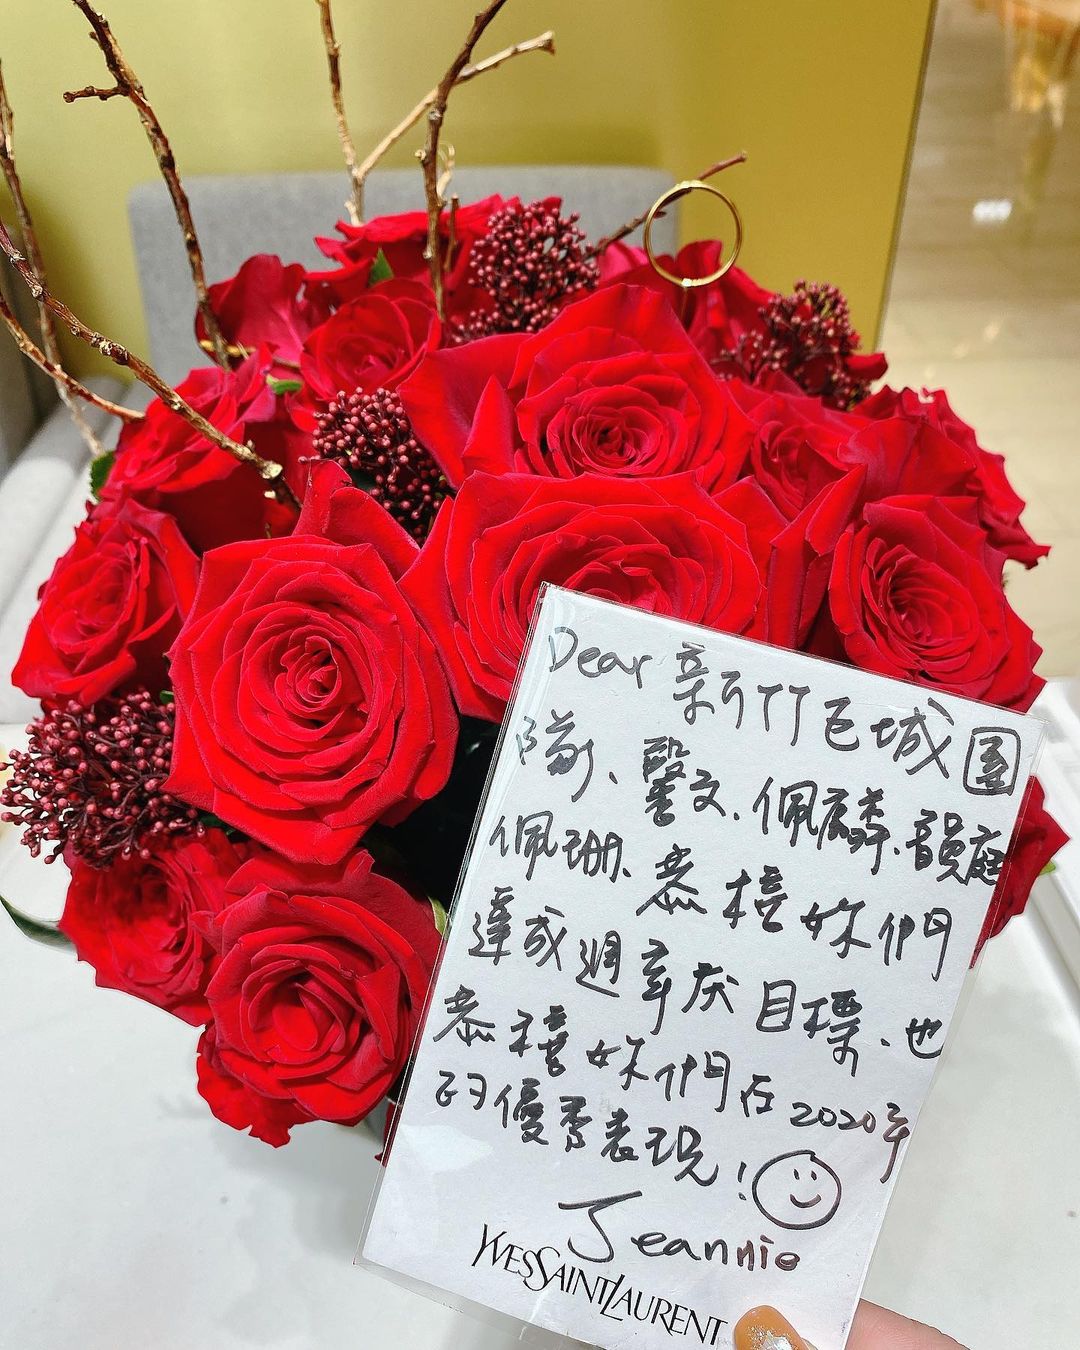 Dear 新竹巨城團
隊、馨文、佩麟、韻庭
佩珊、恭禧妳們
達成週年庆目標、也
恭禧妳們在2020年
的優秀表現!
Jeannie
YVESSAINTLAURENT